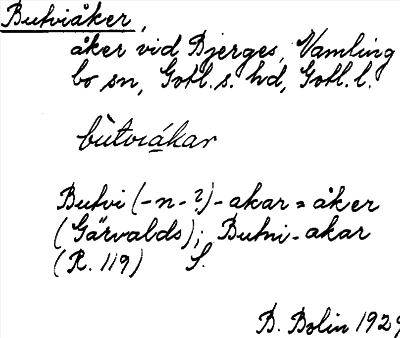 Butviåker,
åker vid Bjerges, Vamling
bo sn, Gotl. s. hd, Gotl. l.
bùtviákar
Butvi (-n-?)-akar = åker
(Gärvalds); Butni-akar
(R. 119) S.
B. Bolin 1929